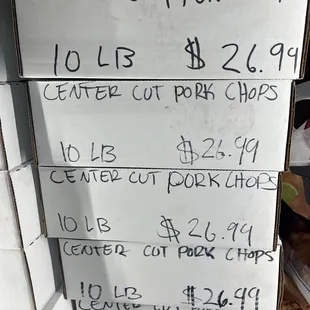 10 LB $26.99
CENTER CUT PORK CHOPS
10 LB $26.99
CENTER CUT PORK CHOPS
10 LB $26.99
CENTER CUT PORK CHOPS
10 LB $26.99
CENTER CUT